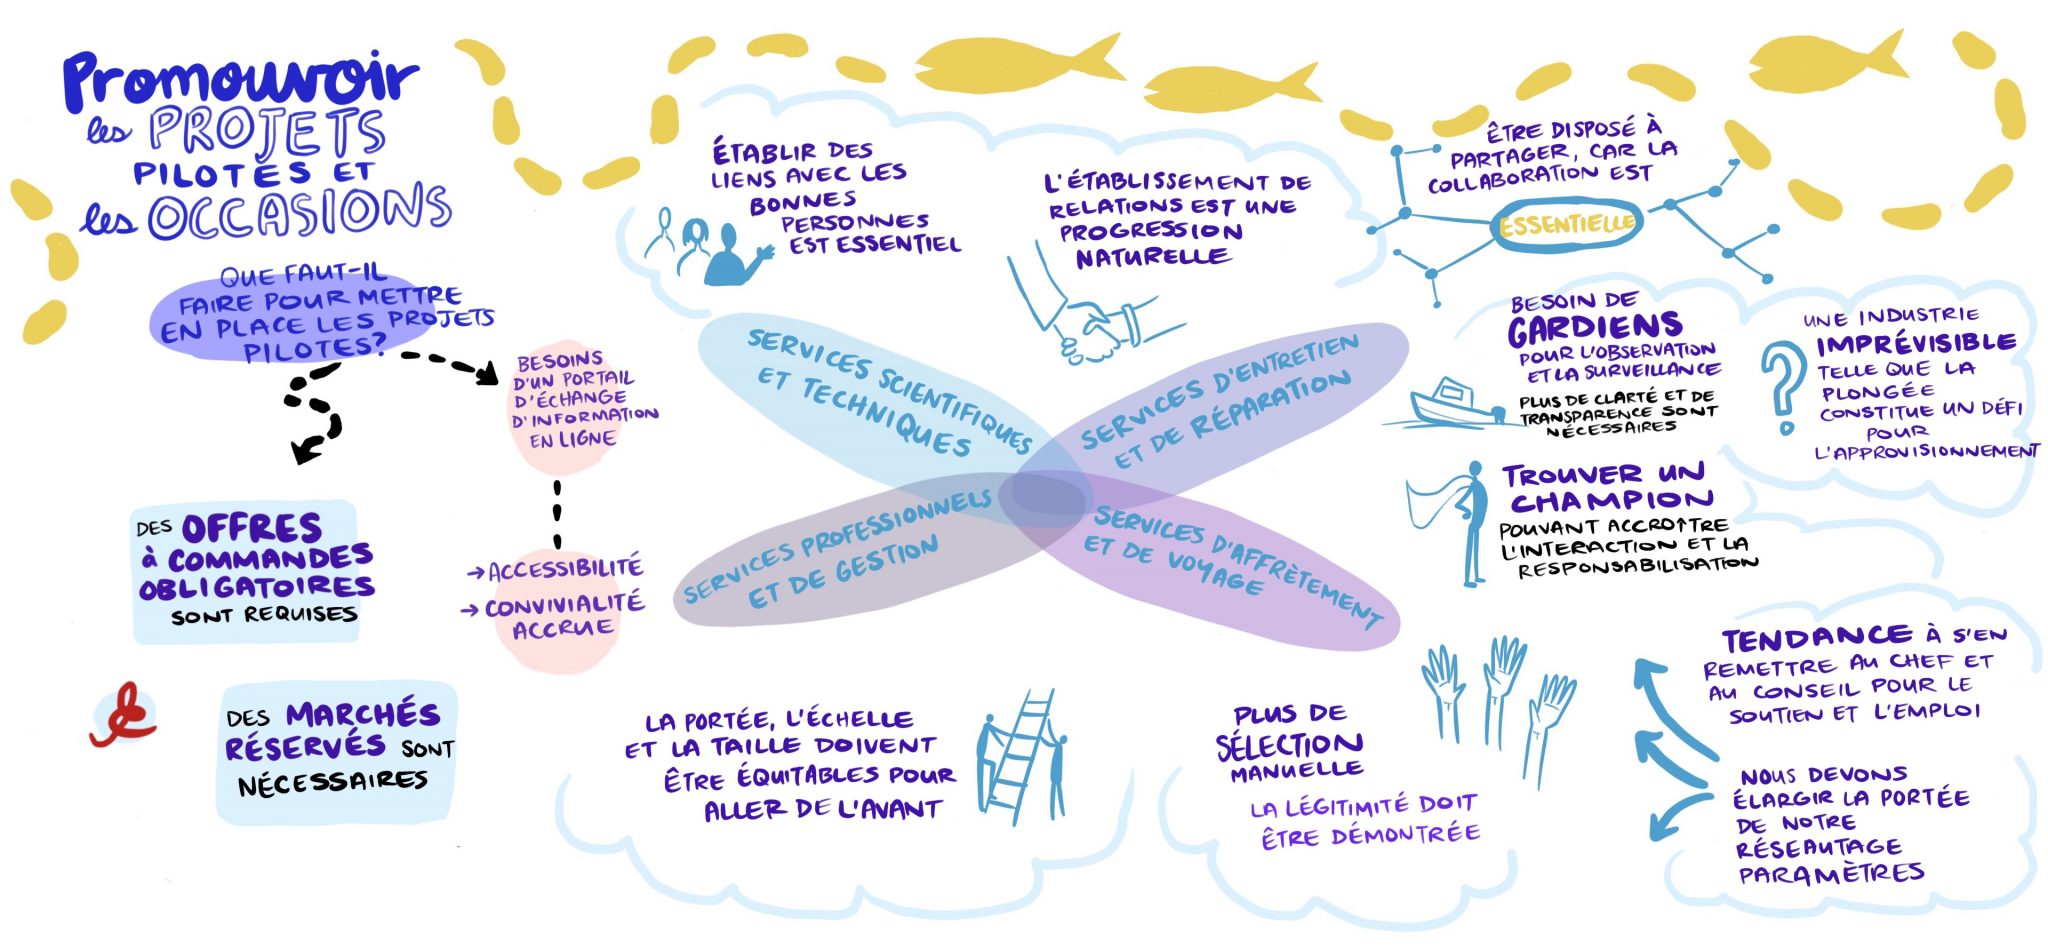 Promouvoir
les PROJETS
PILOTES ET
les OCCASIONS
QUE FAUT-IL
FAIRE POUR METTRE
EN PLACE LES PROJETS
PILOTES?
BESOINS
D'UN PORTAIL
D'ÉCHANGE
D'INFORMATION
EN LIGNE
→ ACCESSIBILITÉ
→ CONVIVIALITÉ
ACCRUE
DES OFFRES
à COMMANDES
OBLIGATOIRES
SONT REQUISES
DES MARCHÉS
RÉSERVÉS SONT
NÉCESSAIRES
ÉTABLIR DES
LIENS AVEC LES
BONNES
PERSONNES
EST ESSENTIEL
L'ÉTABLISSEMENT DE
RELATIONS EST UNE
PROGRESSION
NATURELLE
ÊTRE DISPOSÉ À
PARTAGER, CAR LA
COLLABORATION EST
ESSENTIELLE
SERVICES SCIENTIFIQUES
ET TECHNIQUES
SERVICES D'ENTRETIEN
ET DE RÉPARATION
SERVICES PROFESSIONNELS
ET DE GESTION
SERVICES D'AFFRÈTEMENT
ET DE VOYAGE
BESOIN DE
GARDIENS
POUR L'OBSERVATION
ET LA SURVEILLANCE
PLUS DE CLARTÉ ET DE
TRANSPARENCE SONT
NÉCESSAIRES
UNE INDUSTRIE
IMPRÉVISIBLE
TELLE QUE LA
PLONGÉE
CONSTITUE UN DÉFI
POUR
L'APPROVISIONNEMENT
?
TROUVER UN
CHAMPION
POUVANT ACCROÎTRE
L'INTERACTION ET LA
RESPONSABILISATION
LA PORTÉE, L'ÉCHELLE
ET LA TAILLE DOIVENT
ÊTRE ÉQUITABLES POUR
ALLER DE L'AVANT
PLUS DE
SÉLECTION
MANUELLE
LA LÉGITIMITÉ DOIT
ÊTRE DÉMONTRÉE
TENDANCE À S'EN
REMETTRE AU CHEF ET
AU CONSEIL POUR LE
SOUTIEN ET L'EMPLOI
NOUS DEVONS
ÉLARGIR LA PORTÉE
DE NOTRE
RÉSEAUTAGE
PARAMÈTRES